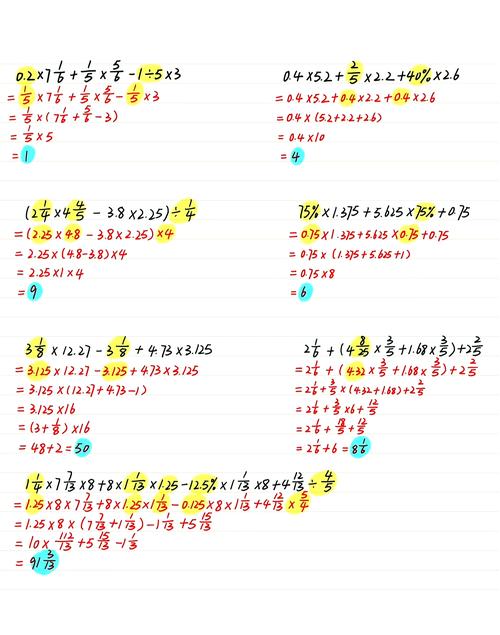 0.2×7 1/6 + 1/5 × 5/6 − 1÷5×3
= 1/5 × 7 1/6 + 1/5 × 5/6 − 1/5 × 3
= 1/5 × (7 1/6 + 5/6 − 3)
= 1/5 × 5
= 1
0.4×5.2 + 2/5 × 2.2 + 40% × 2.6
= 0.4×5.2 + 0.4×2.2 + 0.4×2.6
= 0.4×(5.2+2.2+2.6)
= 0.4×10
= 4
(2 1/4 × 4 4/5 − 3.8×2.25) ÷ 1/4
= (2.25 × 4.8 − 3.8×2.25) × 4
= 2.25×(4.8−3.8)×4
= 2.25×1×4
= 9
75% × 1.375 + 5.625 × 75% + 0.75
= 0.75×1.375 + 5.625×0.75 + 0.75
= 0.75×(1.375+5.625+1)
= 0.75×8
= 6
3 1/8 × 12.27 − 3 1/8 + 4.73×3.125
= 3.125×12.27 − 3.125 + 4.73×3.125
= 3.125×(12.27+4.73−1)
= 3.125×16
= (3+1/8)×16
= 48+2 = 50
2 1/6 + (4 8/25 × 3/5 + 1.68 × 3/5) + 2 2/5
= 2 1/6 + (4.32 × 3/5 + 1.68 × 3/5) + 2 2/5
= 2 1/6 + 3/5 × (4.32+1.68) + 2 2/5
= 2 1/6 + 3/5 × 6 + 12/5
= 2 1/6 + 18/5 + 12/5
= 2 1/6 + 6 = 8 1/6
1 1/4 × 7 7/13 × 8 + 8×1 1/13 × 1.25 − 12.5% × 1 1/13 × 8 + 4 12/13 ÷ 4/5
= 1.25×8×7 7/13 + 8×1.25×1 1/13 − 0.125×8×1 1/13 + 4 12/13 × 5/4
= 1.25×8×(7 7/13 + 1 1/13) − 1 1/13 + 5 15/13
= 10× 112/13 + 5 15/13 − 1 1/13
= 91 3/13